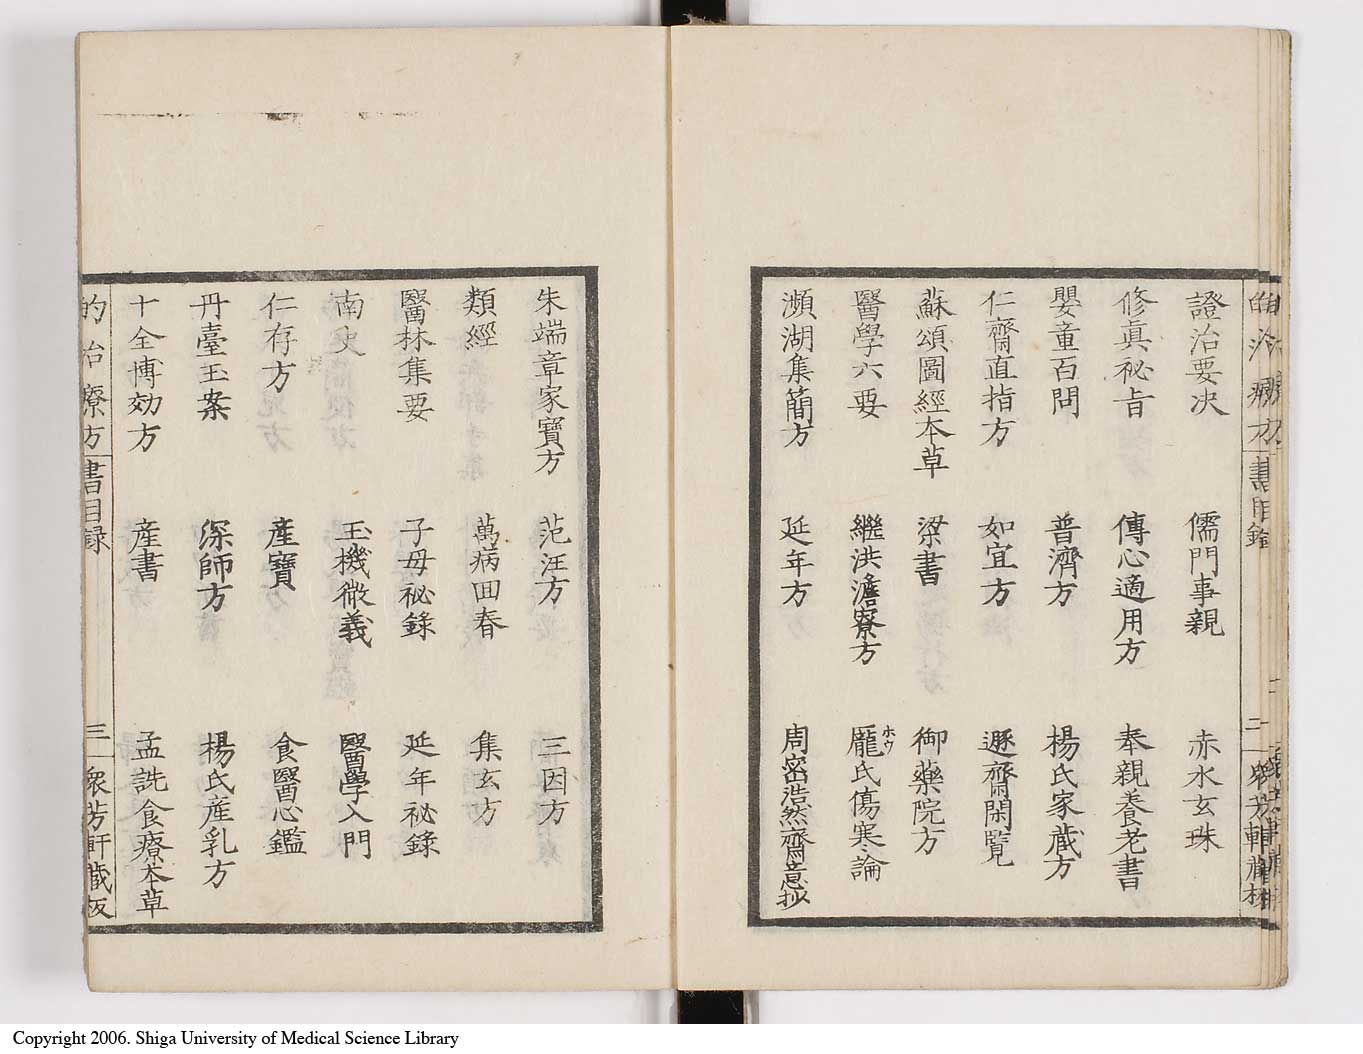 證治要决 儒門事親 赤水玄珠
修真秘旨 傳心適用方 奉親養老書
嬰童百問 普濟方 楊氏家蔵方
仁齋直指方 如宜方 遯齋閑覧
蘇頌圖經本草 梁書 御藥院方
醫學六要 繼洪澹寮方 龐氏傷寒論
ホウ
瀕湖集簡方 延年方 周密浩然齋意抄
朱端章家寶方 范汪方 三因方
類經 萬病回春 集玄方
醫林集要 子母祕錄 延年祕錄
南史 玉機微義 醫學入門
仁存方 産寶 食醫心鑑
丹臺玉案 深師方 楊氏産乳方
十全博効方 産書 孟詵食療本草
的治療方 書目録 三 衆芳軒蔵板
Copyright 2006. Shiga University of Medical Science Library